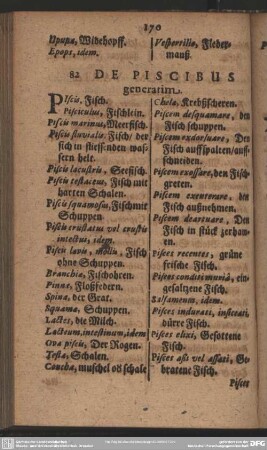 170
Upupa, Widehopff.
Epops, idem.
Vespertilio, Fleder-
mauß.
82 DE PISCIBUS
generatim.
Piscis, Fisch.
Pisciculus, Fischlein.
Piscis marinus, Meerfisch.
Piscis fluvialis, Fisch/ der
sich in fliessenden was-
sern helt.
Piscis lacustris, Seefisch.
Piscis testaceus, Fisch mit
harten Schalen.
Piscis squamosus, Fisch mit
Schuppen.
Piscis crustatus vel crustis
intectus, idem.
Piscis lævis, mollis, Fisch
ohne Schuppen.
Branchiæ, Fischohren.
Pinnæ, Floßfedern.
Spina, der Grat.
Squama, Schuppen.
Lactes, die Milch.
Lacteum, intestinum, idem
Ova piscis, Der Rogen.
Testa, Schalen.
Concha, muschel od schale
Chela, Krebßscheren.
Piscem desquamare, den
Fisch schuppen.
Piscem exdorsuare, Den
Fisch auffspalten/auff-
schneiden.
Piscem exossare, den Fisch
greten.
Piscem exenterare, den
Fisch außnehmen.
Piscem deartuare, Den
Fisch in stück zerhau-
en.
Pisces recentes, grüne
frische Fisch.
Pisces conditimuriâ, ein-
gesaltzene Fisch.
Salsamenum, idem.
Pisces indurati, infumati,
dürre Fisch.
Pisces elixi, Gesottene
Fisch.
Pisces assi vel assati, Ge-
bratene Fisch.
Pisces